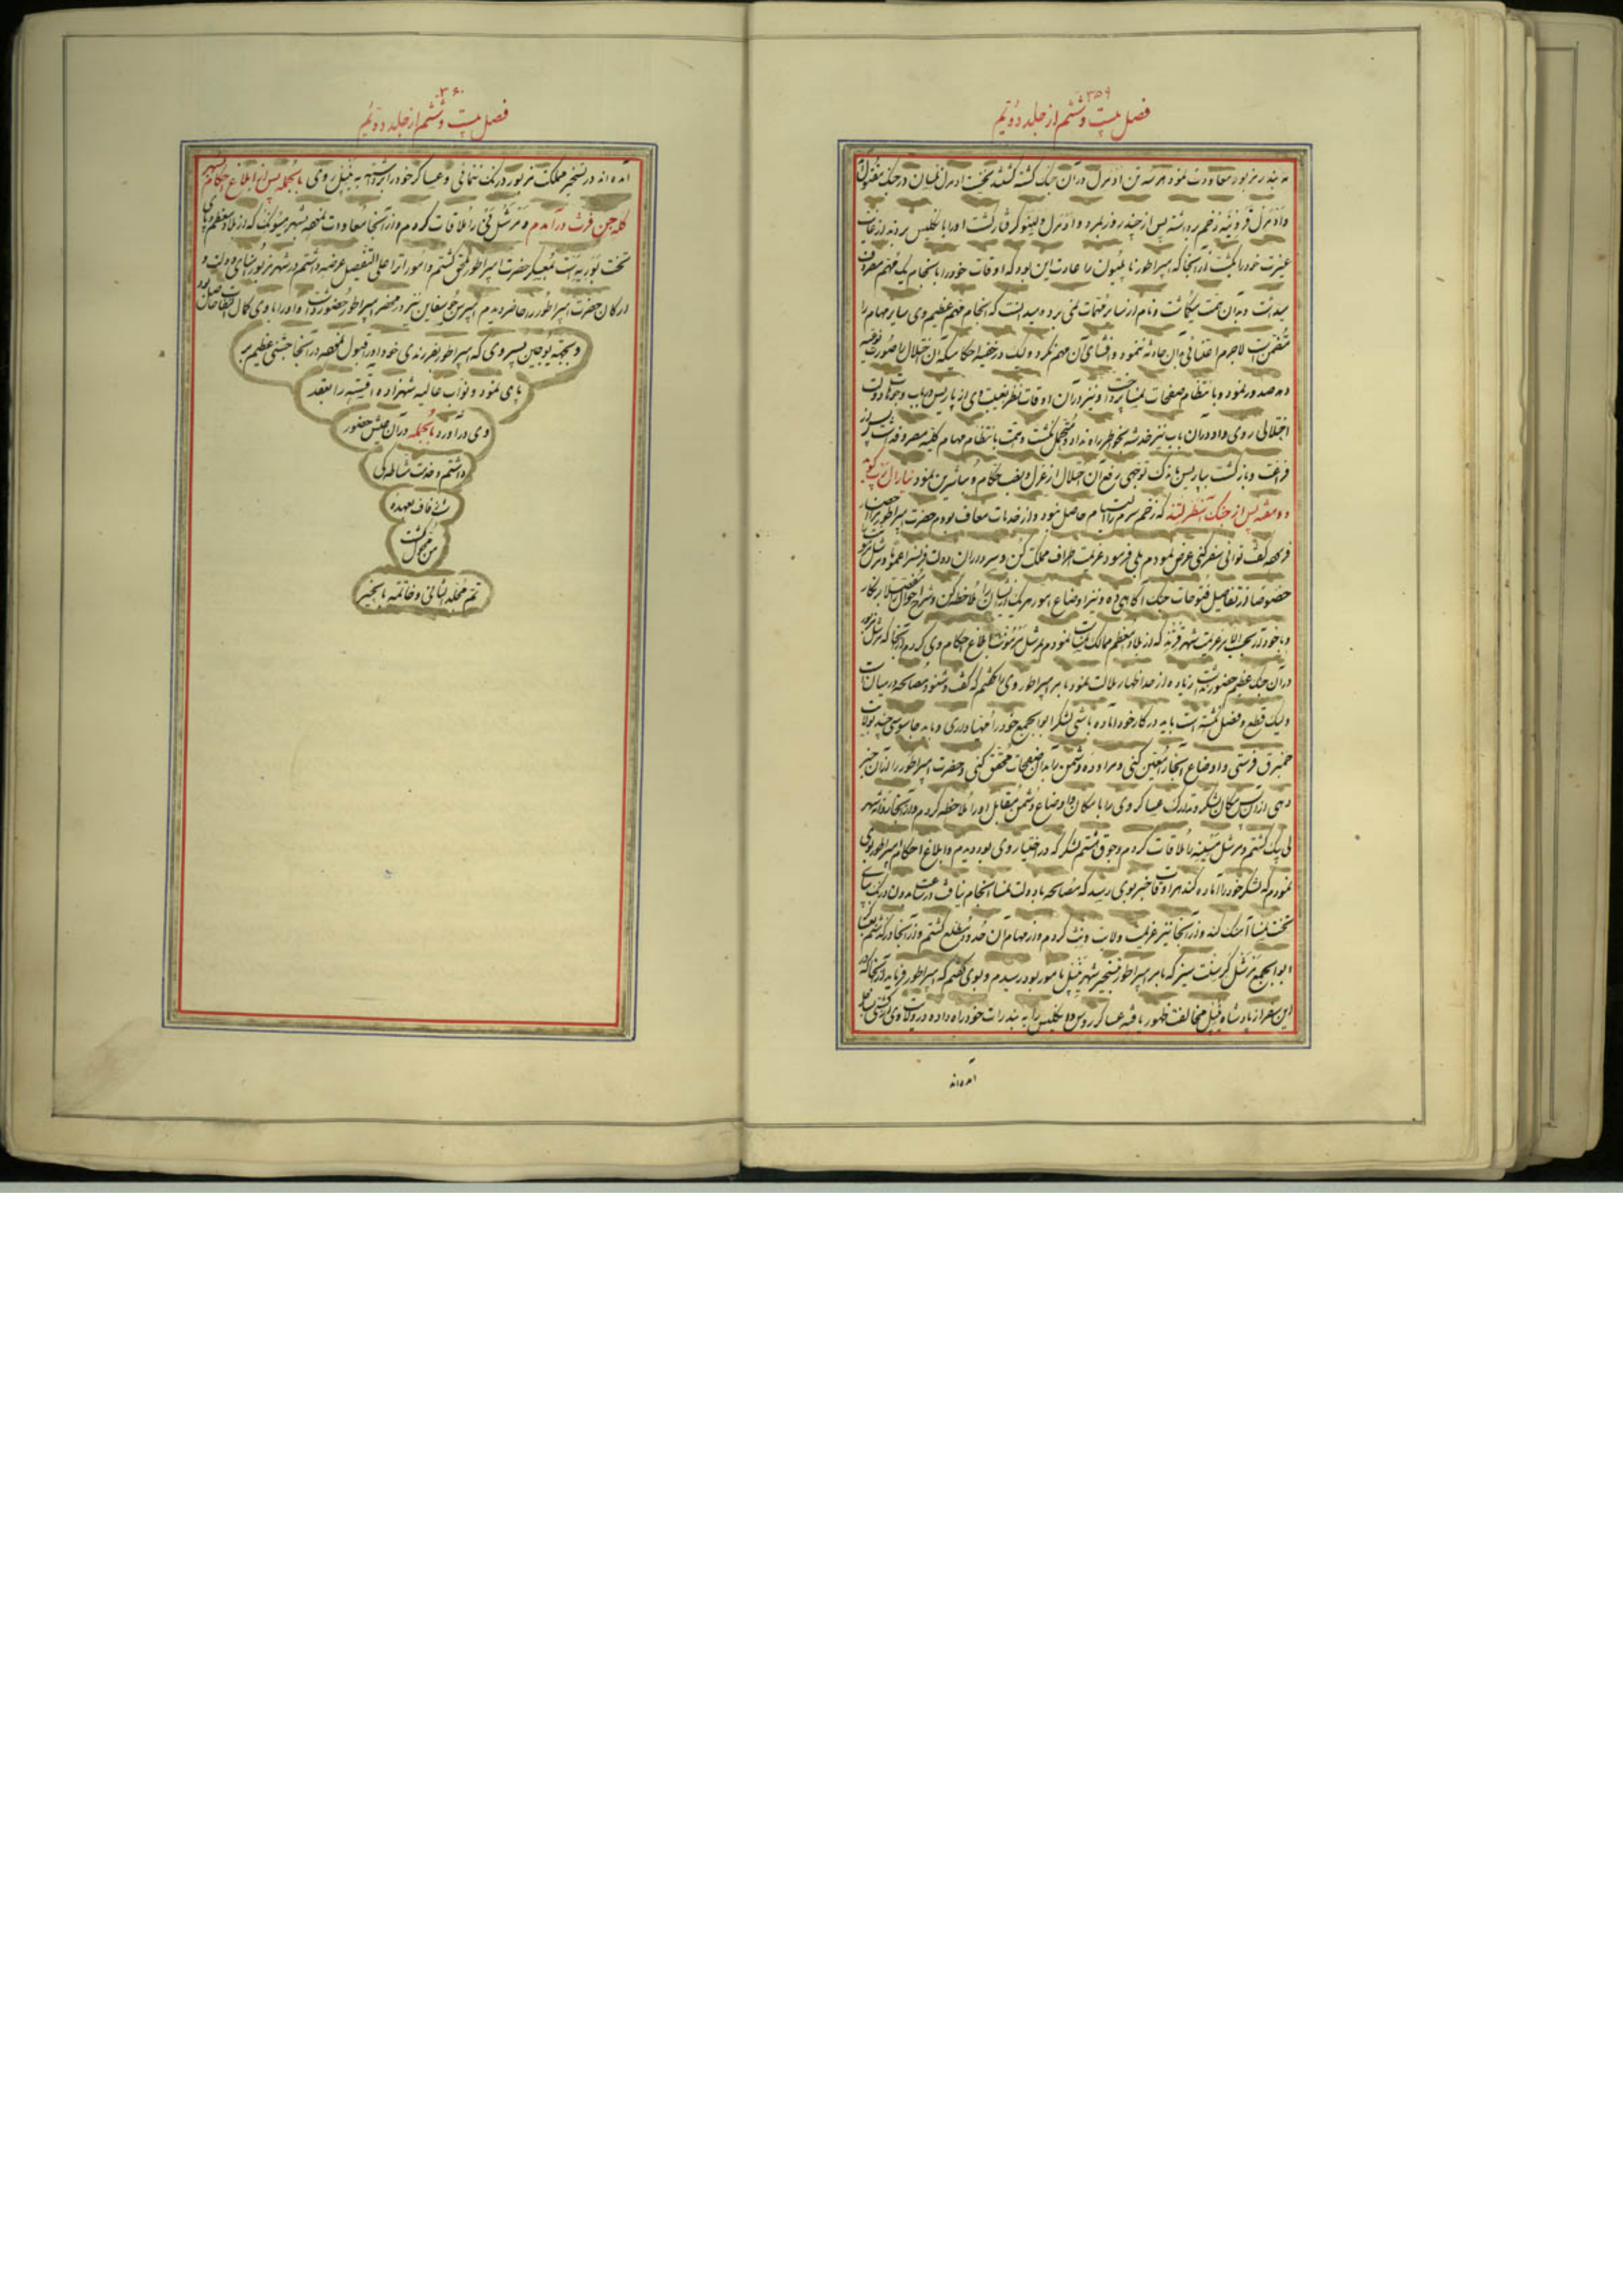 ۳۵۹
فصل بیست و ششم از جلد دویم
به بندر مزبور معاودت نمود هر سه تن ادمرل در آن جنک کشته کشتند نخست ادمرل نلسان در جنک مقتول
و ادمرل زخم برداشته پس از چند روز بمرد و ادمرل ویلنو گرفتار کشت او را بانکلیس بردند از غایت
غیرت خود را بکشت از آنجا که امپراطور ناپلیون را عادت این بود که اوقات خود را بانجام یک مهم مصروف
میداشت و بدان همت میکماشت و نام از سایر مهمات نمی برد و میدانست که انجام مهم عظیم وی سایر مهام را
متضمن است لاجرم اعتنائی بآن حادثه ننمود و افشای آن مهم نکرد ولیک در خفیه احکامیکه آن اختلال را صورت
دهد صدور نمود و بانتظام صفحات نمسا پرداخت و نیز در آن اوقات نظر بغیبت وی از پاریس در باب وجوهات دولت
اختلالی روی داد در آن باب نیز خدشه بخواطر راه نداد و متحمل نکشت و همت بانتظام مهام کلیه مصروف داشت پس از
فراغت و بازکشت بپاریس باندک توجهی رفع آن اختلال از عزل و نصب حکام و مباشرین نمود جنرال رپ کوید
دو هفته پس از جنک استرلیتز که زخم سرم را التیام حاصل نبود و از خدمات معاف بودم حضرت امپراطور مرا احضار
فرموده کفت توانی سفر کنی عرض نمودم بلی فرمود عزیمت اطراف مملکت کن و سرداران دولت فرانسه را عموما و مرشل
خصوصا از تفاصیل فتوحات جنک آکاهی ده و نیز اوضاع امور هر یک از ایشان را ملاحظه کن و شرح احوال
و با خود عزیمت شهر که از بلاد معظم ممالک است نمودم مرشل مزبور ابلاغ احکام وی کردم از آنجا که مرشل مزبور
در آن جنک عظیم حضور نداشت زیاده از حد اظهار ملالت نمود بامر امپراطور وی را کفتم که کفت و شنود مصالحه در میان است
ولیک قطع و فصل نکشته است باید در کار خود آماده باشی لشکر ابوابجمعی خود را مهیا داری و باید جاسوسی چند بولایت
فرستی و اوضاع آنجا را معین کنی و مراوده دشمن را بدان صفحات محقق کنی و حضرت امپراطور را از آن خبر
دهی از آن پس مکان لشکر و تدارک عساکر وی را با مکان و اوضاع دشمن مقابل او را ملاحظه کردم و از آنجا روانه شهر
کشتم و مرشل را ملاقات کردم و جوق هشتم لشکر که در اختیار وی بود دیدم و ابلاغ احکام امپراطور بوی
نمودم که لشکر خود را آماده کند هر اوقات خبر بوی رسید که مصالحه با دولت نمسا انجام نیافت در ساعت بدون درنک بپای
تخت نمسا آهنک کند و از آنجا نیز عزیمت ولایت ونیث کردم و از مهام آن حدود مطلع کشتم و از آنجا درکذشتم بعساکر
ابوابجمع مرشل سنت سیر که بامر امپراطور بتسخیر شهر نیپل مامور بود رسیدم و بوی کفتم که امپراطور فرماید از آنجا که در
این سفر از پادشاه نیپل مخالفت ظهور یافته عساکر روس و انکلیس را به بندرات خود راه داده در ولایت وی
آمده اند
۳۶۰
فصل بیست و ششم از جلد دویم
آمده اند در تسخیر مملکت مزبور درنک ننمائی و عساکر خود را برداشته به نیپل روی بالجمله پس از ابلاغ احکام بشهر
کله جن فرث درآمدم و مرشل نی را ملاقات کردم و از آنجا معاودت نموده بشهر میونک که از بلاد معظم و پای
تخت بوریه است بمعسکر حضرت امپراطور ملحق کشتم و امور را علی التفصیل عرضه داشتم در شهر مزبور
ارکان حضرت امپراطور را حاضر دیدم امپرس جوسفاین نیز در محضر امپراطور حضور داشت و او را با وی کمال التفات حاصل بود
و بجهته یوجین پسر وی که امپراطور بفرزندی خود او را قبول نموده در آنجا جشنی عظیم بر
پای نمود و نواب عالیه شهزاده اقسیه را بعقد
وی درآورد بالجمله در آن جشن حضور
داشتم و خدمت مشاطه کی
شب زفاف بعهده
من محول کشت
تم مجلد الثانی و خاتمته بالخیر